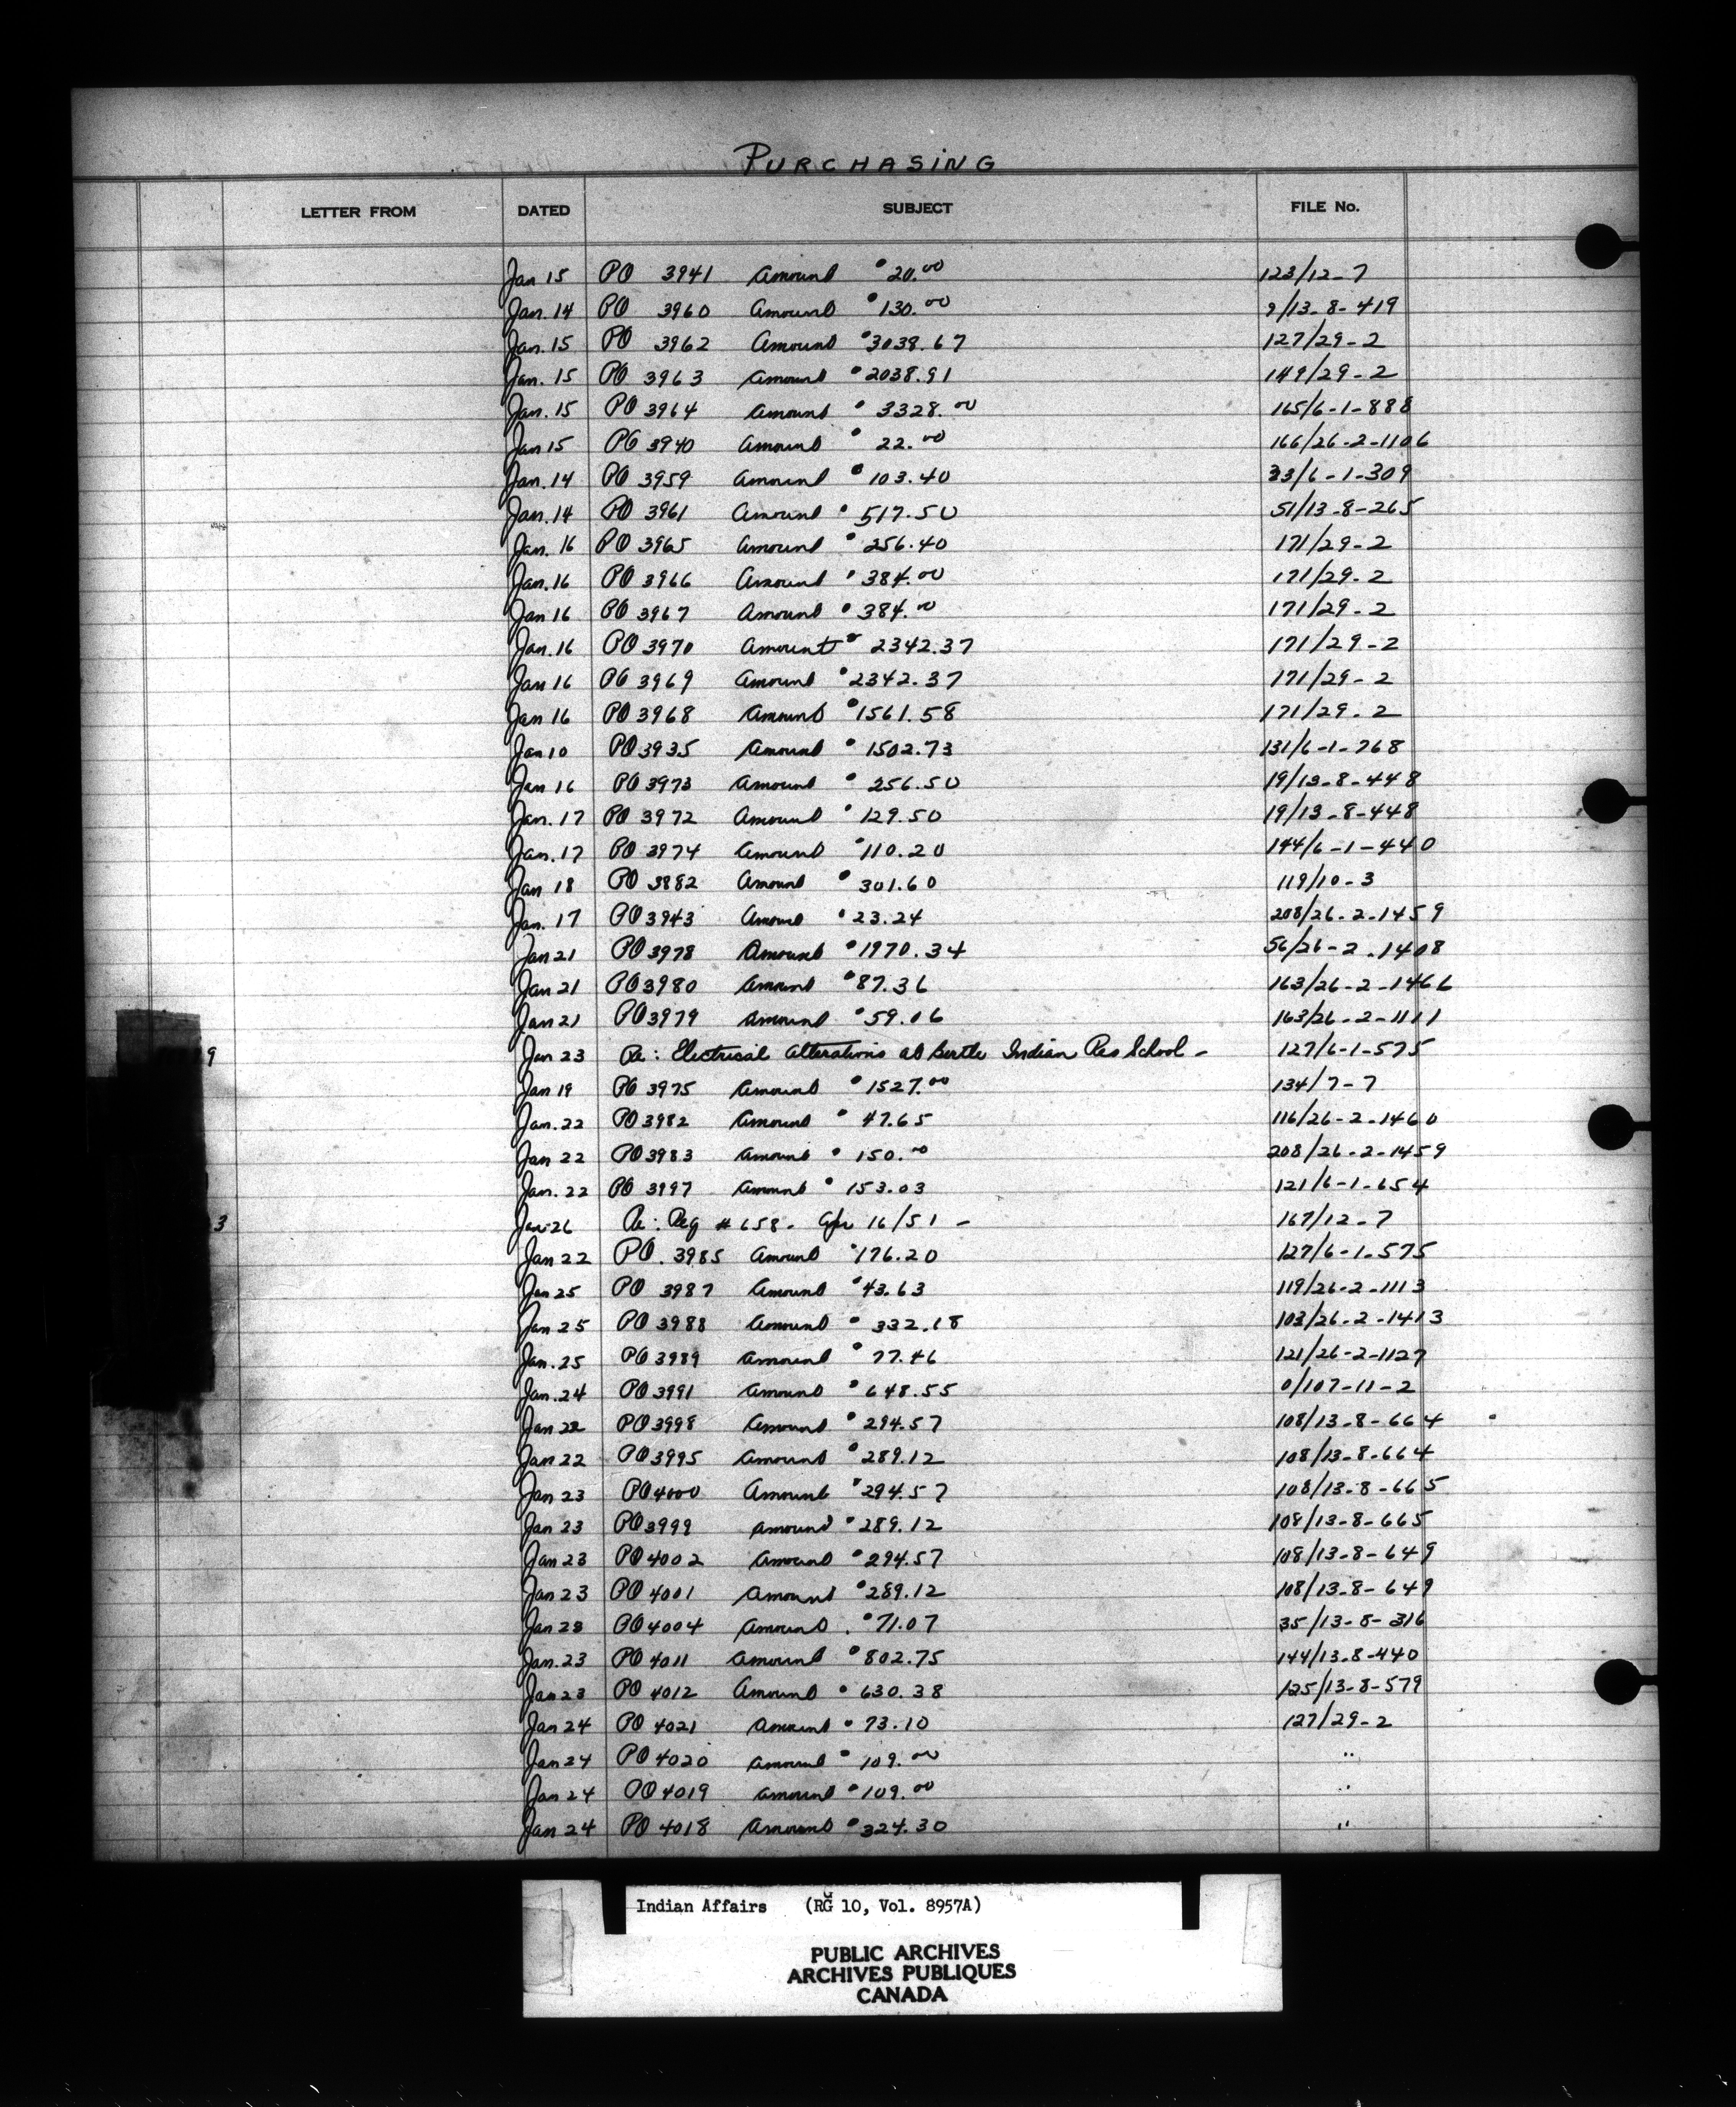 PURCHASING
LETTER FROM DATED SUBJECT FILE No.
Jan 15 PO 3941 Amount $20.00 123/12-7
Jan. 14 PO 3960 Amount $130.00 9/13-8-419
Jan. 15 PO 3962 Amount $3038.67 127/29-2
Jan. 15 PO 3963 Amount $2038.91 149/29-2
Jan. 15 PO 3964 Amount $3328.00 165/6-1-888
Jan 15 PO 3940 Amount $22.00 166/26-2-1106
Jan. 14 PO 3959 Amount $103.40 33/6-1-309
Jan. 14 PO 3961 Amount $517.50 51/13-8-265
Jan. 16 PO 3965 Amount $256.40 171/29-2
Jan. 16 PO 3966 Amount $384.00 171/29-2
Jan 16 PO 3967 Amount $384.00 171/29-2
Jan. 16 PO 3970 Amount $2342.37 171/29-2
Jan 16 PO 3969 Amount $2342.37 171/29-2
Jan 16 PO 3968 Amount $1561.58 171/29-2
Jan 10 PO 3935 Amount $1502.73 131/6-1-768
Jan 16 PO 3973 Amount $256.50 19/13-8-448
Jan. 17 PO 3972 Amount $129.50 19/13-8-448
Jan. 17 PO 3974 Amount $110.20 144/6-1-440
Jan 18 PO 3882 Amount $301.60 119/10-3
Jan. 17 PO 3943 Amount $23.24 208/26-2-1459
Jan 21 PO 3978 Amount $1970.34 56/26-2-1408
Jan 21 PO 3980 Amount $87.36 163/26-2-1466
Jan 21 PO 3979 Amount $59.06 163/26-2-1111
9 Jan 23 Re: Electrical Alterations at Birtle Indian Res School - 127/6-1-575
Jan 19 PO 3975 Amount $1527.00 134/7-7
Jan. 22 PO 3982 Amount $47.65 116/26-2-1460
Jan 22 PO 3983 Amount $150.00 208/26-2-1459
Jan. 22 PO 3997 Amount $153.03 121/6-1-654
3 Jan-26 Re: Req #658- 16/51 - 167/12-7
Jan 22 PO. 3985 Amount $176.20 127/6-1-575
Jan 25 PO 3987 Amount $43.63 119/26-2-1113
Jan 25 PO 3988 Amount $332.18 103/26-2-1413
Jan. 25 PO 3989 Amount $77.46 121/26-2-1127
Jan. 24 PO 3991 Amount $648.55 0/107-11-2
Jan 22 PO 3998 Amount $294.57 108/13-8-664
Jan 22 PO 3995 Amount $289.12 108/13-8-664
Jan 23 PO 4000 Amount $294.57 108/13-8-665
Jan 23 PO 3999 Amount $289.12 108/13-8-665
Jan 23 PO 4002 Amount $294.57 108/13-8-649
Jan 23 PO 4001 Amount $289.12 108/13-8-649
Jan 28 PO 4004 Amount $71.07 35/13-8-316
Jan. 23 PO 4011 Amount $802.75 144/13-8-440
Jan 23 PO 4012 Amount $630.38 125/13-8-579
Jan 24 PO 4021 Amount $73.10 127/29-2
Jan 24 PO 4020 Amount $109.00 "
Jan 24 PO 4019 Amount $109.00 "
Jan 24 PO 4018 Amount $324.30 "
Indian Affairs (RG 10, Vol. 8957A)
PUBLIC ARCHIVES
ARCHIVES PUBLIQUES
CANADA